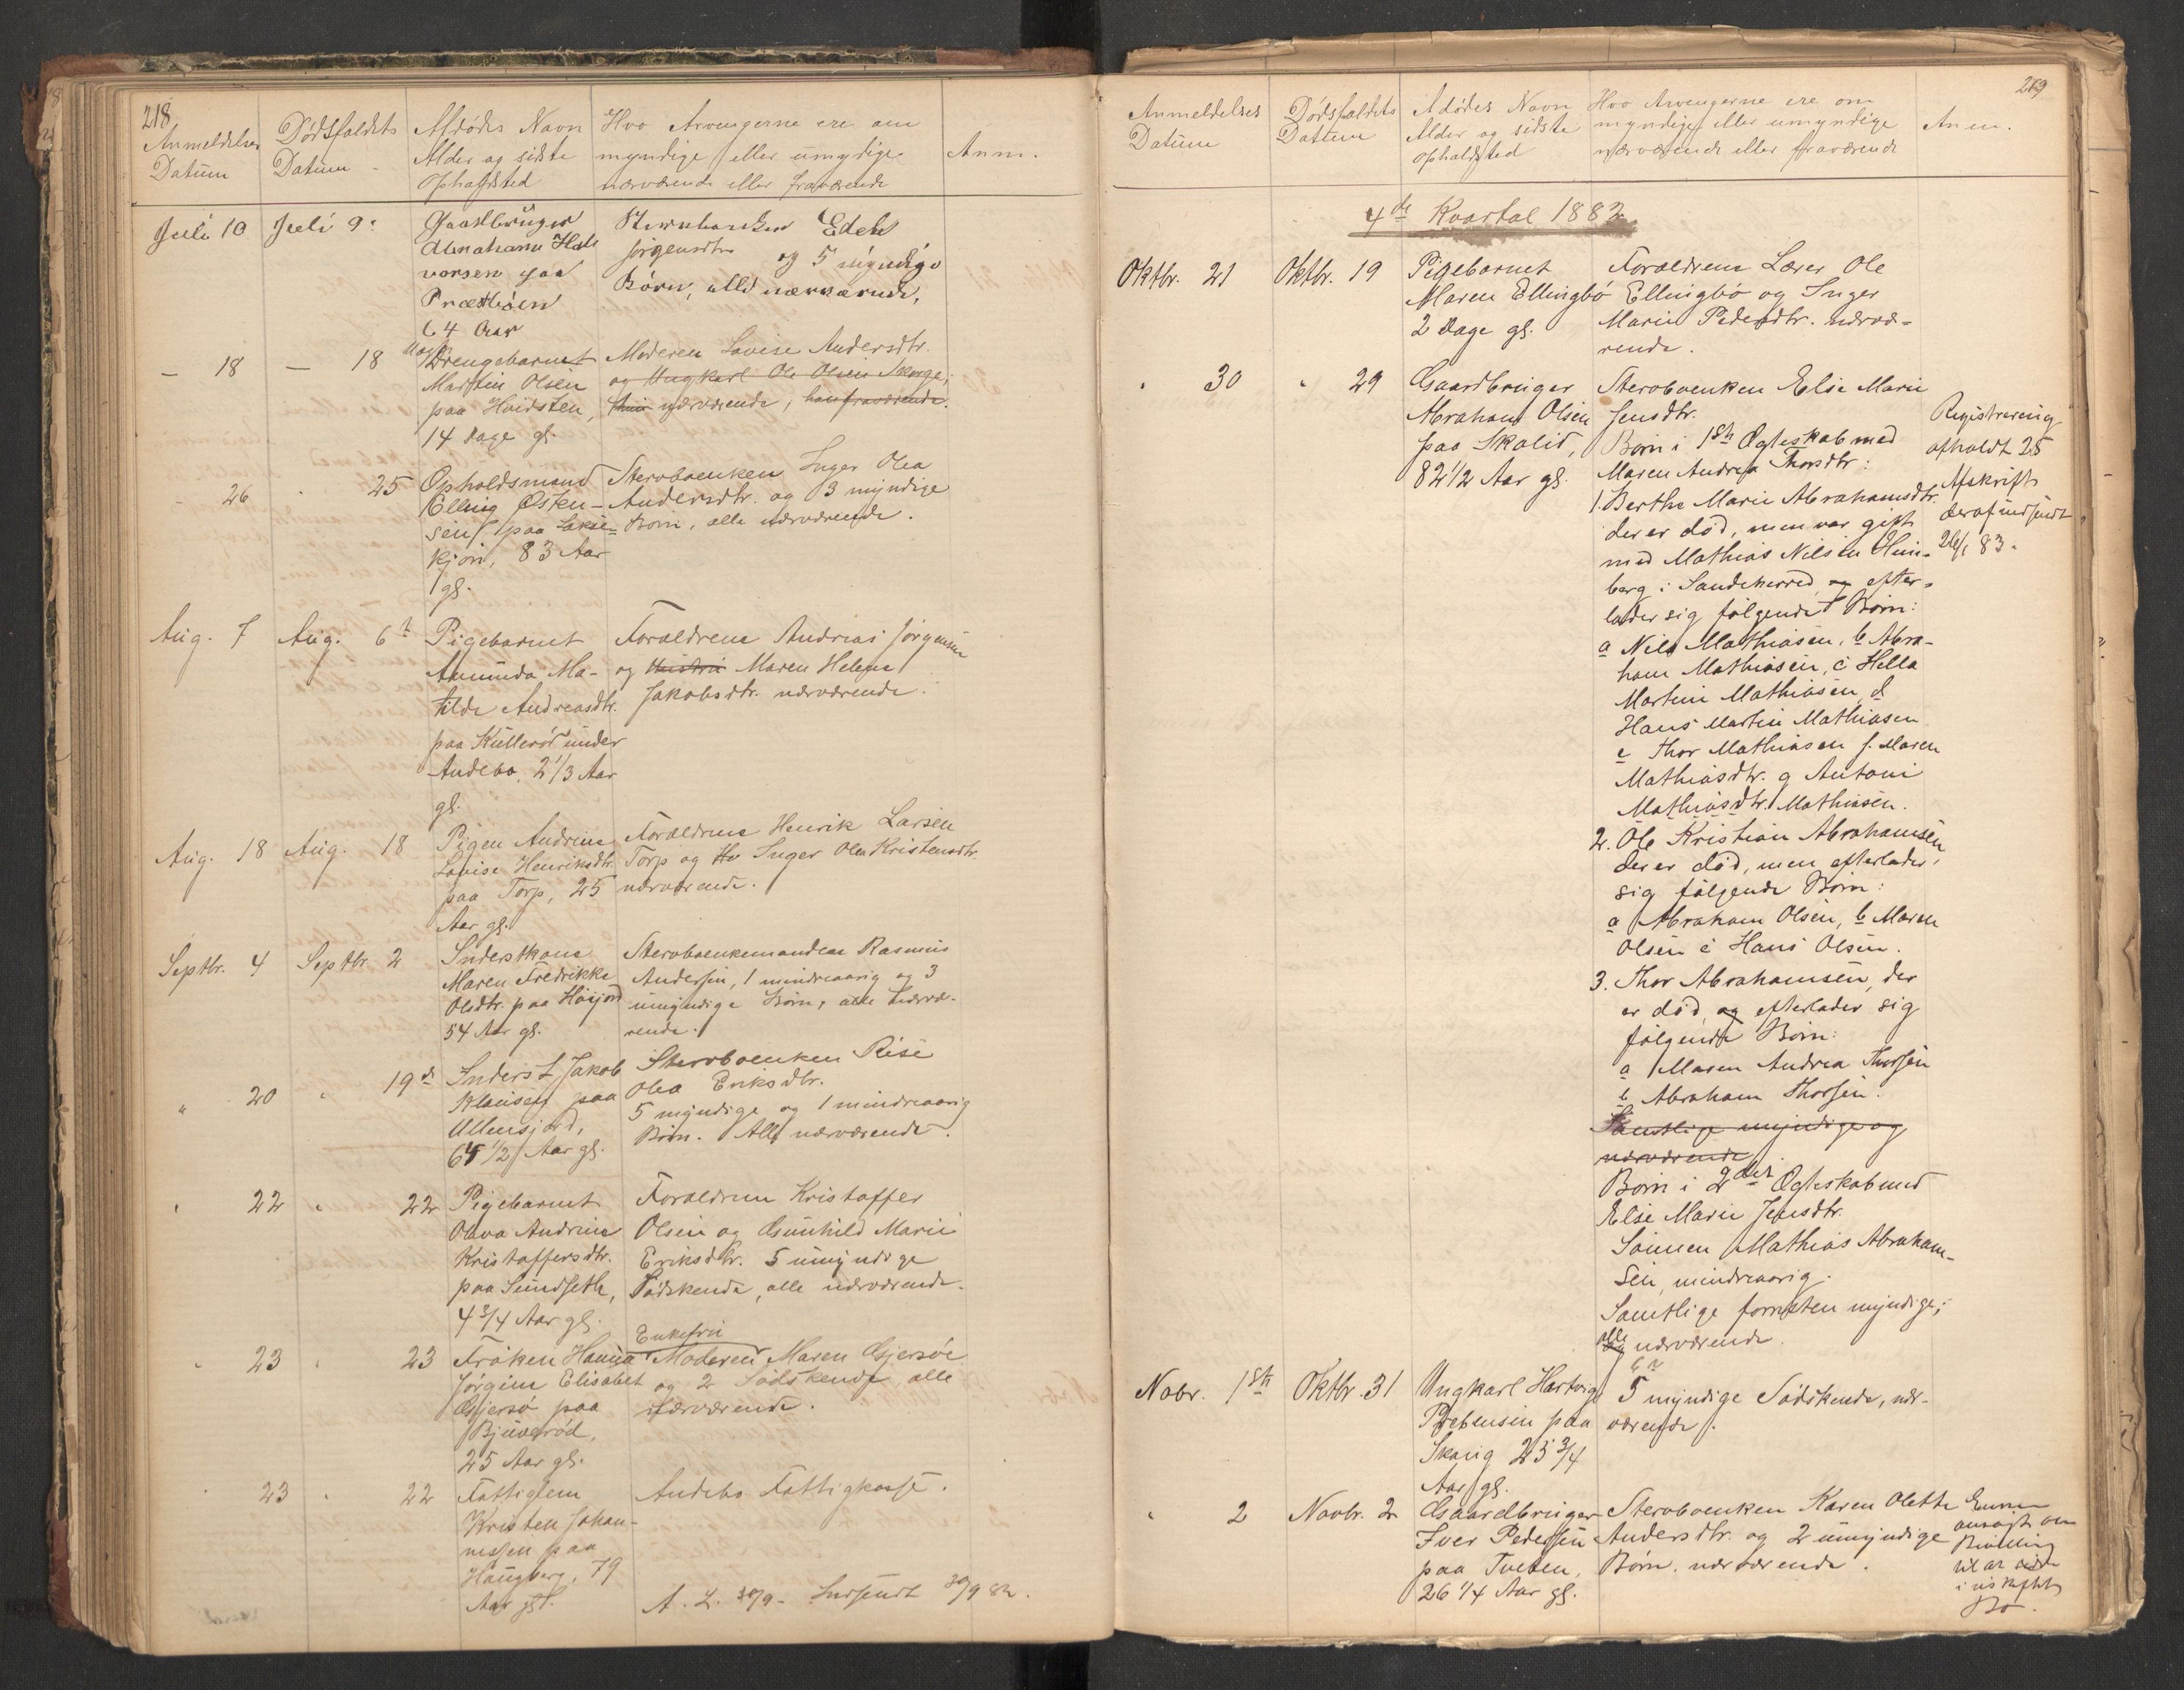 218.
Anmeldelses
Datum
Dødsfaldets
Datum
Afdødes Navn
Alder og sidste
Opholdsted
Hvo Arvengerne ere om
myndige eller umyndige
nærværende eller fraværende
Anm.
Juli 10 Juli 9.
Gaardbruger
Abrahams Hal-
vorsen paa
Præstbøen
64 Aar
Edel
Jörgensdtr og 5 myndige
Börn, alle nærværende.
— 18 — 18
Drengebarnet
Martin Olsen
paa Hvidsten,
14 Dage gl.
Moderen Lovise Andersdtr.
og Ungkarl Ole Olsen Skorge;
nærværende, han fraværende.
- 26 " 25
Opholdsmand
Elling Østen-
sen paa
kjøn, 83 Aar
gl.
Stervboenken Inger Olea
Andersdtr. og 3 myndige
Börn, alle nærværende.
Aug. 7 Aug. 6
Pigebarnet
Amunda Ma-
tilde Andreasdtr.
paa Kulleröd under
Andebo, 2 1/3 Aar
gl.
Forældrene Andreas Jörgensen
og Hustru Maren Helene
Jakobsdtr. nærværende.
Aug. 18 Aug. 18
Pigen Andrine
Lovise Henriksdtr.
paa Torp, 25
Aar gl.
Forældrene Henrik Larsen
Torp og Hu Inger Olea Kristensdtr.
nærværende.
Septbr. 4 Septbr. 2
Inderstkone
Maren Fredrikke
Olsdtr. paa Höijord
54 Aar gl.
Stervboenkemanden Rasmus
Andersen, 1 mindreaarig og 3
umyndige Börn, alle nærvæ-
rende.
" 20 " 19de
Inderst Jakob
Klausen paa
64 1/2 Aar gl.
Stervboenken Rise
Olea Eriksdtr.
5 myndige og 1 mindreaarig
Börn. Alle nærværende.
" 22 " 22
Pigebarnet
Olava Andrine
Kristoffersdtr.
paa Sundseth,
4 3/4 Aar gl.
Forældrene Kristoffer
Olsen og Gunhild Marie
Eriksdtr. 5 umyndige
Södskende, alle nærværende.
" 23 " 23
Fröken Hanna
Jörgine Elisabet
Gjersö paa
Bjueröd,
25 Aar gl.
Enkefru
Moderen Maren Gjersöe
og 2 Södskende, alle
nærværende.
" 23 " 22
Fattiglem
Kristen Johan-
nessen paa
Haugberg, 79
Aar gl.
Andebo Fattigkasse.
A. L. 30/9 - Indsendt 30/9 82.
219
Anmeldelses
Datum
Dødsfaldets
Datum
Afdødes Navn
Alder og sidste
Opholdsted
Hvo Arvengerne ere om
myndige eller umyndige
nærværende eller fraværende
Anm.
4de Kvartal 1882
Oktbr. 21 Oktbr. 19
Pigebarnet
Maren Ellingbö
2 Dage gl.
Forældrene Lærer Ole
Ellingbö og Inger
Marie Pedersdtr. nærvæ-
rende.
" 30 " 29
Gaardbruger
Abraham Olsen
paa Skolid,
82 1/2 Aar gl.
Stervboenken Else Marie
Jensdtr.
Börn i 1ste Ægteskab med
Maren Andrea Thorsdtr:
1. Berthe Marie Abrahamsdtr.
der er död, men var gift
med Mathias Nilsen Hun-
berg i Sandeherred, og efter-
lader sig fölgende Börn:
a Nils Mathiasen, b Abra-
ham Mathiasen, c Hella
Martine Mathiasen, d
Hans Martin Mathiasen
e Thor Mathiasen f. Maren
Mathiasdtr. g Antoni
Mathiasdtr. Mathiasen.
2. Ole Kristian Abrahamsen
der er död, men efterlader
sig fölgende Börn:
a Abraham Olsen, b Maren
Olsen c Hans Olsen.
3. Thor Abrahamsen, der
er död, og efterlader sig
fölgende Börn:
a Maren Andrea Thorsen
b Abraham Thorsen.
Samtlige myndige og
nærværende
Börn i 2det Ægteskab med
Else Marie Jensdtr.
Sönnen Mathias Abraham-
sen, mindreaarig.
Samtlige forresten myndige;
alle nærværende.
Registrering
afholdt 25
Afskrift
deraf indsendt
26/1 83.
Nobr. 1ste Oktbr. 31
Ungkarl Hartvig
Prebensen paa
Skorig 25 3/4
Aar gl.
5 myndige Södskende, nær-
værende.
" 2 Novbr. 2
Gaardbruger
Iver Pedersen
paa Tveten,
26 1/4 Aar gl.
Stervboenken Karen Olette
Andersdtr. og 2 umyndige
Börn. nærværende.
Enken
ansögt om
Bevilling
til at sidde
i uskiftet
Bo.